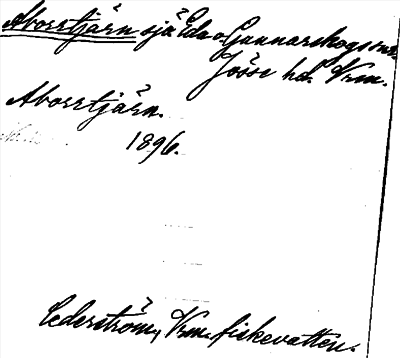 Aborrtjärn sjö Eda o Gunnarskogs snr.
Jösse hd. Vrm.
Aborrtjärn.
1896.
Cederström, Vrm. fiskevatten.